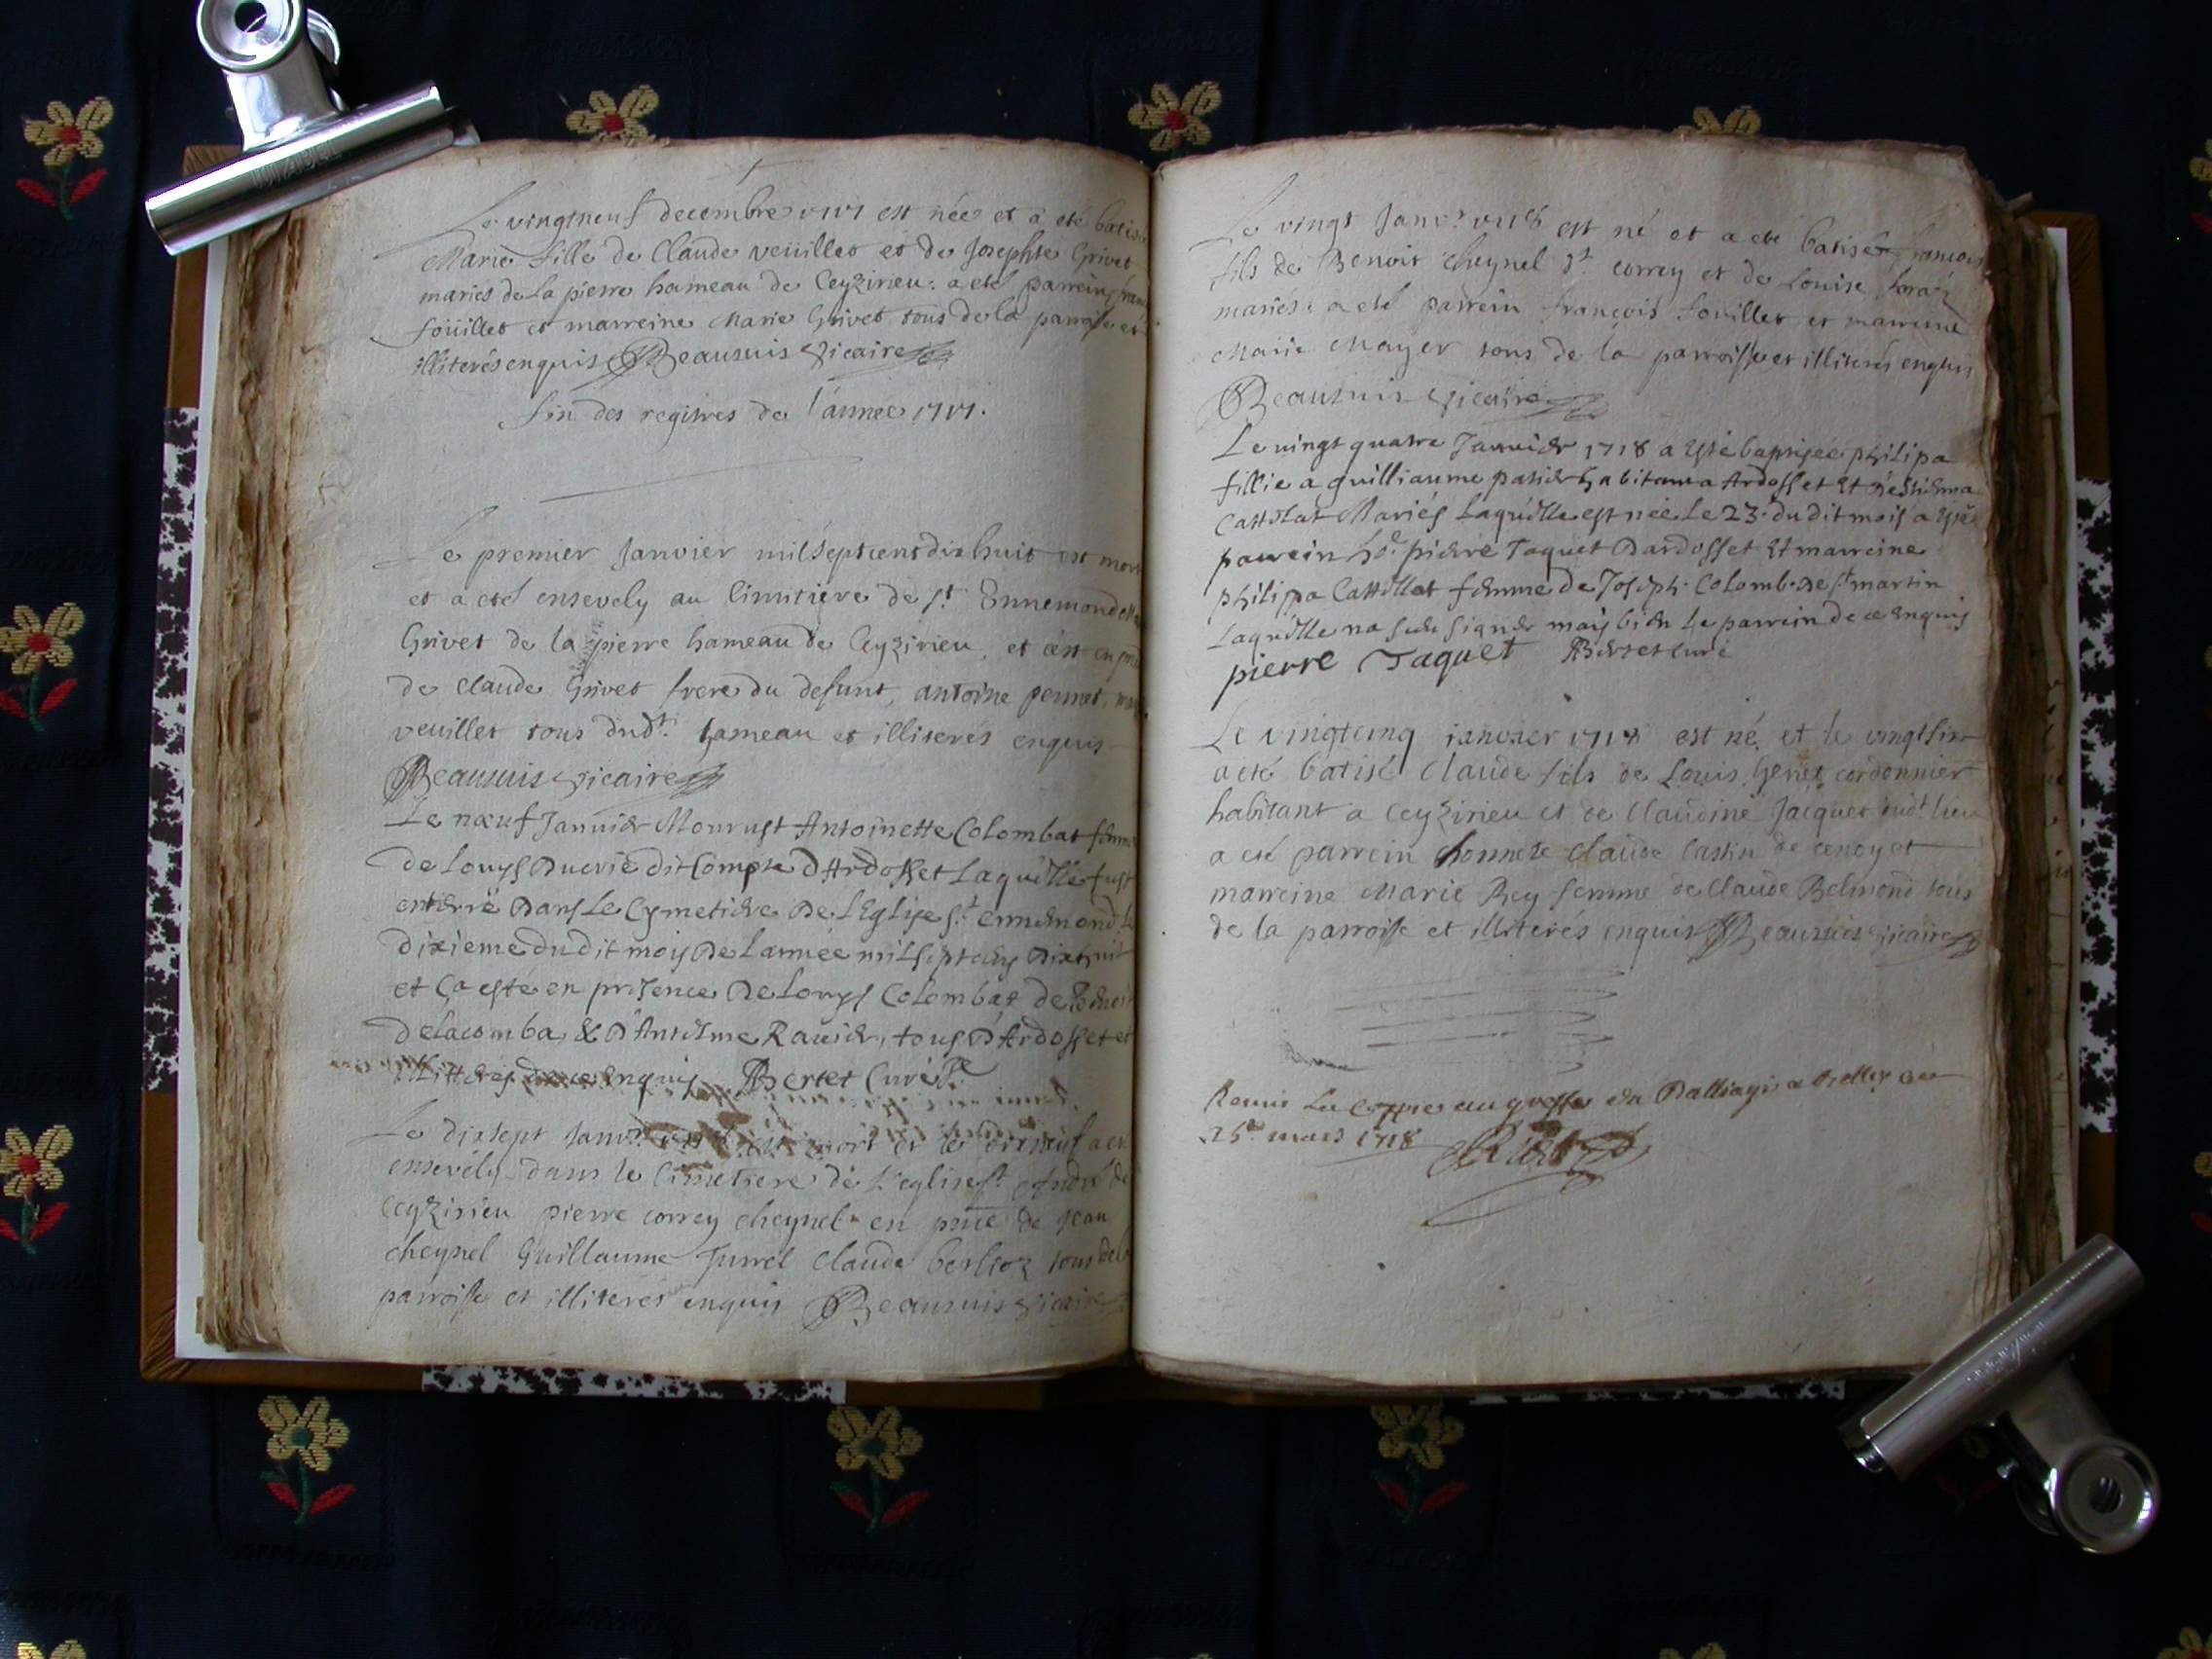 Le vingtneuf decembre 1717 est née et a eté batisé
Marie fille de Claude veüillet et de Josephte Grivet
mariés de la pierre hameau de Ceyzirieu: a eté parrein
foüillet et marreine Marie Grivet tous de la parroisse et
illiterés enquis Beausuis vicaire
fin des registres de l'année 1717.
Le premier Janvier mil sept cent dix huit est mort
et a eté ensevely au Cimitiere de St. Ennemond
Grivet de la pierre hameau de Ceyzirieu, et c'est en
de Claude Grivet frere du defunt, antoine pennet
veuillet tous dudt. hameau et illiterés enquis
Beausuis vicaire
Le nœuf Januier Mourust Antoinette Colombat femme
de Louys dit Compte d'Ardosset Laquelle fust
enterré Dans Le Cymetiere De L'Eglise St. ennemond Le
dixieme du dit mois De L'année mil sept cens Dixhuit
et ça esté en presence De Louys Colombat de
delacomba & D'Antelme Rauier, tous D'Ardosset et
illitterés de ce enquis Bertet Curé
Le dixsept Janvr. est mort et le dixneuf a eté
ensevely dans le cimetiere de l'eglise St. André de
Ceyzirieu pierre correy cheynel en pnce de Jean
cheynel Guillaume Jurrel Claude berlioz tous de la
parroisse et illiterés enquis Beausuis vicaire
Le vingt Janvr. 1718 est né et a eté batisé françois
fils de Benoit cheynel dt. correy et de Louise
mariés: a eté parrein françois foüillet et marreine
Marie Mayer tous de la parroisse et illiterés enquis
Beausuis vicaire
Le uingt quatre Januier 1718 a esté baptisée philipa
fillie a guilliaume patier habitant a Ardosset et d'estiema
Cattelat Mariés Laquelle est née Le 23. du dit mois a esté
parrein he. pierre Taquet Dardosset Et marreine
philipa Cattellat femme de Joseph Colomb De St. martin
Laquelle na sceu signer mais bien Le parrein de ce enquis
pierre Taquet Bertet curé
Le vingtcinq ianvier 1718 est né et le vingtsix
a eté batisé Claude fils de Louis Genet cordonnier
habitant a Ceyzirieu et de Claudine Jacquet dudt. lieu
a eté parrein honnete Claude Castin de et
marreine Marie Rey femme de Claude Belmond tous
de la parroisse et illiterés enquis Beausuis vicaire
Remis La Coppie au greffe du Balliage a Belley ce
25e. mars 1718